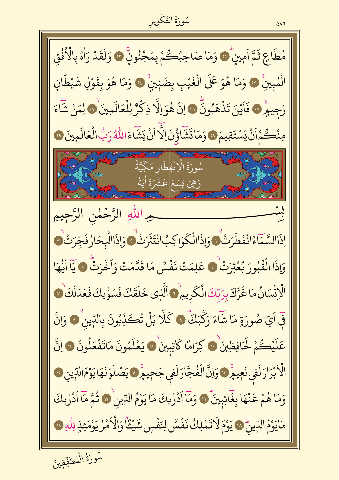 سُورَةُ التَّكْوِيرِ
٥٨٦
مُطَاعٍ ثَمَّ اَمِينٍ ﴿٢١﴾ وَمَا صَاحِبُكُمْ بِمَجْنُونٍ ﴿٢٢﴾ وَلَقَدْ رَاٰهُ بِالْاُفُقِ
الْمُبِينِ ﴿٢٣﴾ وَمَا هُوَ عَلَى الْغَيْبِ بِضَنِينٍ ﴿٢٤﴾ وَمَا هُوَ بِقَوْلِ شَيْطَانٍ
رَجِيمٍ ﴿٢٥﴾ فَاَيْنَ تَذْهَبُونَ ﴿٢٦﴾ اِنْ هُوَ اِلَّا ذِكْرٌ لِلْعَالَمِينَ ﴿٢٧﴾ لِمَنْ شَٓاءَ
مِنْكُمْ اَنْ يَسْتَقِيمَ ﴿٢٨﴾ وَمَا تَشَٓاؤُ۫نَ اِلَّٓا اَنْ يَشَٓاءَ اللّٰهُ رَبُّ الْعَالَمِينَ ﴿٢٩﴾
سُورَةُ الْاِنْفِطَارِ مَكِّيَّةٌ
وَهِيَ تِسْعَ عَشْرَةَ اٰيَةً
بِسْمِ اللّٰهِ الرَّحْمٰنِ الرَّحِيمِ
اِذَا السَّمَٓاءُ انْفَطَرَتْ ﴿١﴾ وَاِذَا الْكَوَاكِبُ انْتَثَرَتْ ﴿٢﴾ وَاِذَا الْبِحَارُ فُجِّرَتْ ﴿٣﴾
وَاِذَا الْقُبُورُ بُعْثِرَتْ ﴿٤﴾ عَلِمَتْ نَفْسٌ مَا قَدَّمَتْ وَاَخَّرَتْ ﴿٥﴾ يَٓا اَيُّهَا
الْاِنْسَانُ مَا غَرَّكَ بِرَبِّكَ الْكَرِيمِ ﴿٦﴾ اَلَّذِي خَلَقَكَ فَسَوّٰيكَ فَعَدَلَكَ ﴿٧﴾
فِٓي اَيِّ صُورَةٍ مَا شَٓاءَ رَكَّبَكَ ﴿٨﴾ كَلَّا بَلْ تُكَذِّبُونَ بِالدِّينِ ﴿٩﴾ وَاِنَّ
عَلَيْكُمْ لَحَافِظِينَ ﴿١٠﴾ كِرَامًا كَاتِبِينَ ﴿١١﴾ يَعْلَمُونَ مَا تَفْعَلُونَ ﴿١٢﴾ اِنَّ
الْاَبْرَارَ لَفِي نَعِيمٍ ﴿١٣﴾ وَاِنَّ الْفُجَّارَ لَفِي جَحِيمٍ ﴿١٤﴾ يَصْلَوْنَهَا يَوْمَ الدِّينِ ﴿١٥﴾
وَمَا هُمْ عَنْهَا بِغَٓائِبِينَ ﴿١٦﴾ وَمَٓا اَدْرٰيكَ مَا يَوْمُ الدِّينِ ﴿١٧﴾ ثُمَّ مَٓا اَدْرٰيكَ
مَا يَوْمُ الدِّينِ ﴿١٨﴾ يَوْمَ لَا تَمْلِكُ نَفْسٌ لِنَفْسٍ شَيْـًٔا وَالْاَمْرُ يَوْمَئِذٍ لِلّٰهِ ﴿١٩﴾
سُورَةُ الْمُطَفِّفِينَ